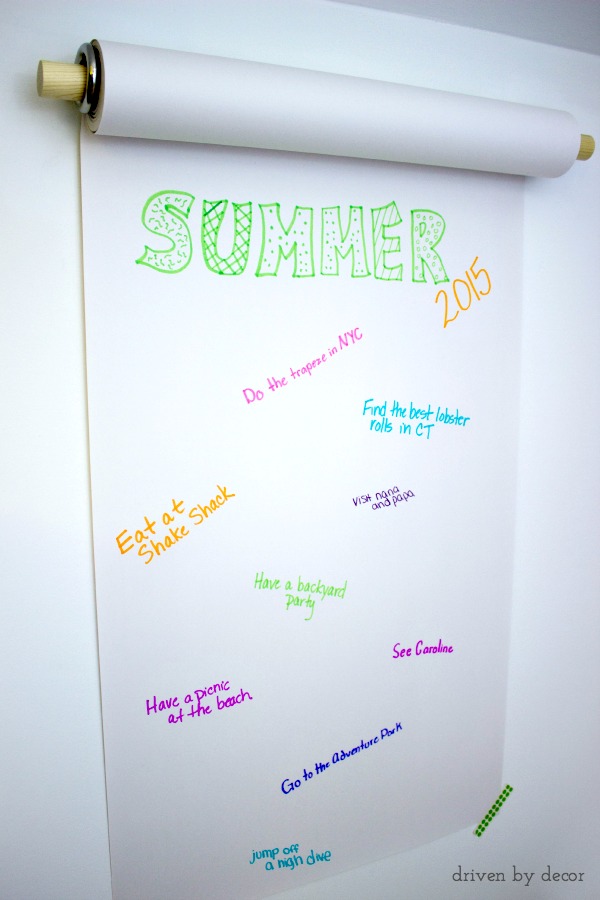 SUMMER
2015
Do the trapeze in NYC
Find the best lobster
rolls in CT
Eat at
Shake Shack
Visit nana
and papa
Have a backyard
Party
See Caroline
Have a picnic
at the beach
Go to the Adventure Park
jump off
a high dive
driven by decor